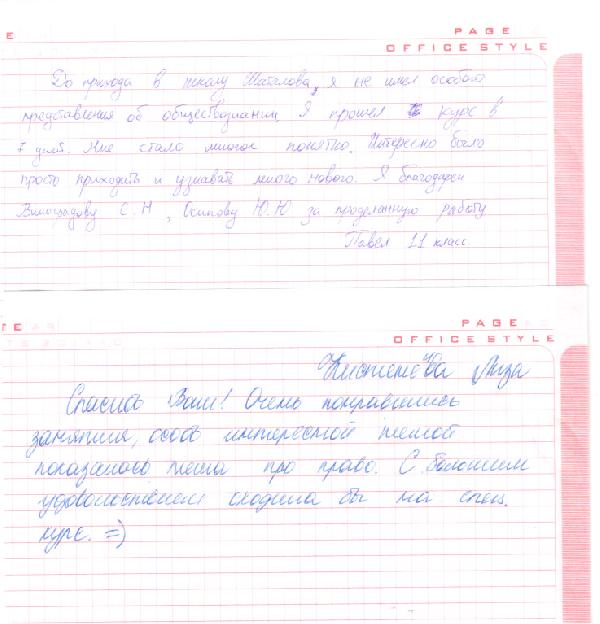 E
PAGE
OFFICE STYLE
До прихода в школу Шаталова, я не имел особого
представления об обществознании. Я прошел курс в
7 дней. Мне стало многое понятно. Интересно было
просто приходить и узнавать много нового. Я благодарен
Виноградову С.Н, Осипову Ю.Ю за проделанную работу
Павел 11 класс
TE
PAGE
OFFICE STYLE
Лиза
Спасибо Вам! Очень понравились
занятия, особо интересной темой
показалась тема про право. С большим
удовольствием сходила бы на спец.
курс. =)